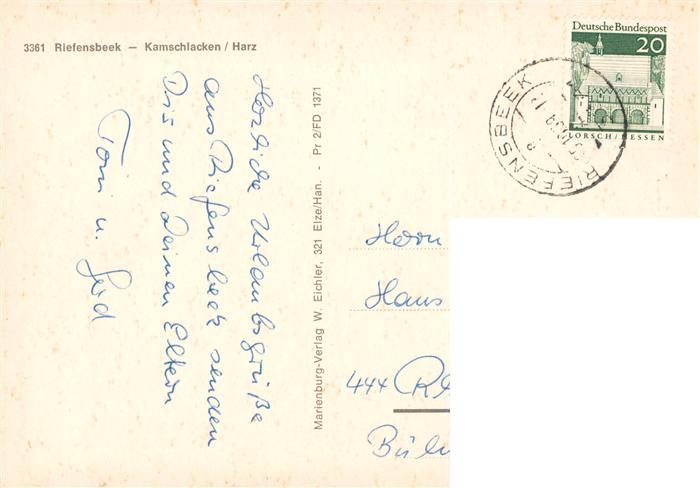 3361 Riefensbeek — Kamschlacken / Harz
Herzliche Urlaubsgrüße
aus Riefensbeek senden
Dir und Deinen Eltern
Toni u. Gerd
Marienburg-Verlag W. Eichler, 321 Elze/Han. - Pr 2/FD 1371
Deutsche Bundespost
20
LORSCH/HESSEN
RIEFENSBEEK
Herrn
Hans
444